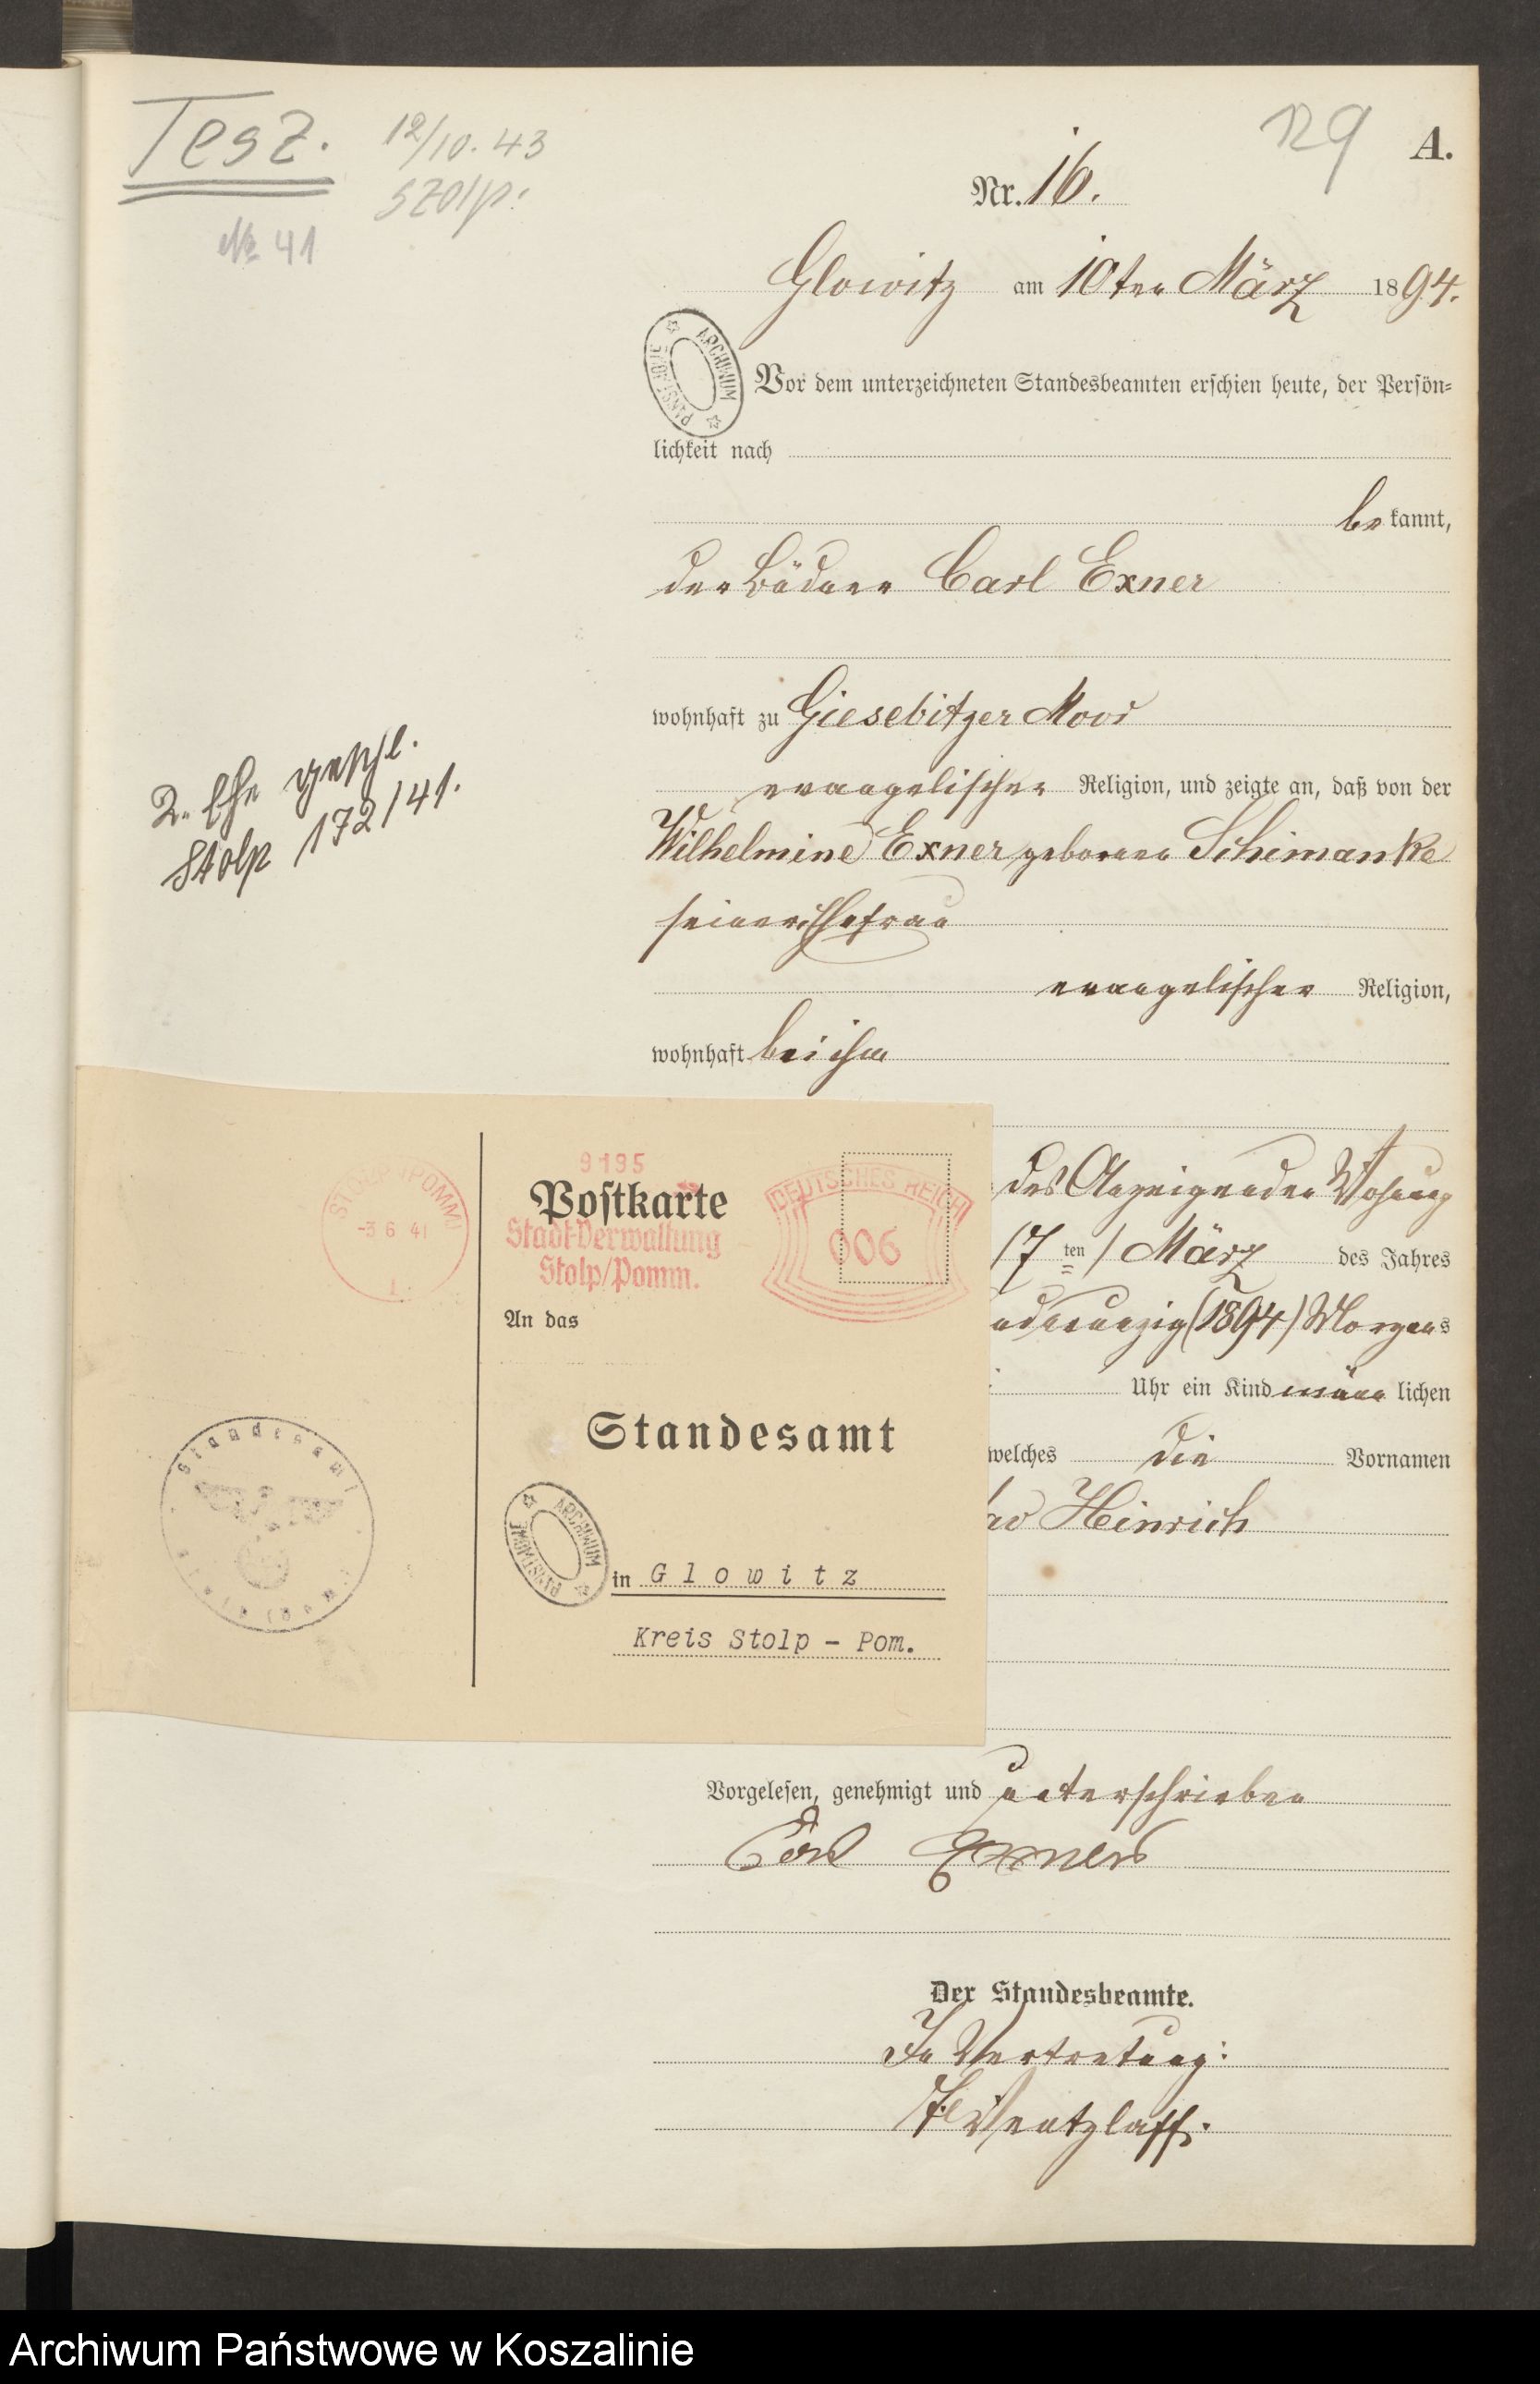 Tesz.
12/10. 43
szolp.
№ 41
129
A.
Nr. 16.
Glowitz am 10ten März 1894.
ARCHIWUM PAŃSTWOWE
Vor dem unterzeichneten Standesbeamten erschien heute, der Persön-
lichkeit nach
be kannt,
der Büdner Carl Exner
wohnhaft zu Giesebitzer Moor
evangelischer Religion, und zeigte an, daß von der
Wilhelmine Exner geborene Schimanke
seiner Ehefrau
evangelischer Religion,
wohnhaft bei ihm
2. Ehe geschl.
Stolp 172/41.
des Anzeigenden Wohnung
(7ten) März des Jahres
undneunzig (1894) Morgens
Uhr ein Kind männ lichen
welches die Vornamen
Heinrich
STOLP (POMM)
-3 6 41
1
9195
Postkarte
Stadt-Verwaltung
Stolp/Pomm.
DEUTSCHES REICH
006
An das
Standesamt
Standesamt
ARCHIWUM PAŃSTWOWE
in Glowitz
Kreis Stolp - Pom.
Vorgelesen, genehmigt und unterschrieben
Carl Exner
Der Standesbeamte.
In Vertretung:
Wentzlaff.
Archiwum Państwowe w Koszalinie